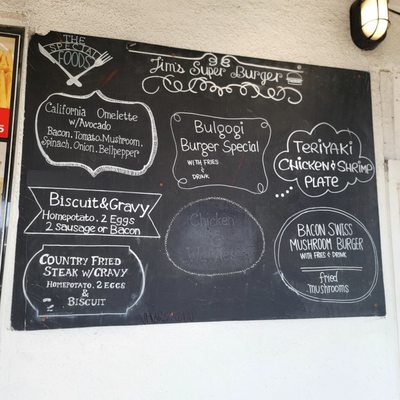 THE
SPECIAL
FOODS
Jim's Super Burger
California Omelette
w/Avocado
Bacon, Tomato, Mushroom,
Spinach, Onion, Bellpepper
Bulgogi
Burger Special
WITH FRIES
&
DRINK
TERIYAKI
CHICKEN & SHRIMP
PLATE
BISCUIT & GRAVY
Homepotato, 2 Eggs
2 Sausage or Bacon
Chicken
&
BACON SWISS
MUSHROOM BURGER
WITH FRIES & DRINK
fried
mushrooms
COUNTRY FRIED
STEAK W/CRAVY
HOMEPOTATO, 2 EGGS
&
BISCUIT